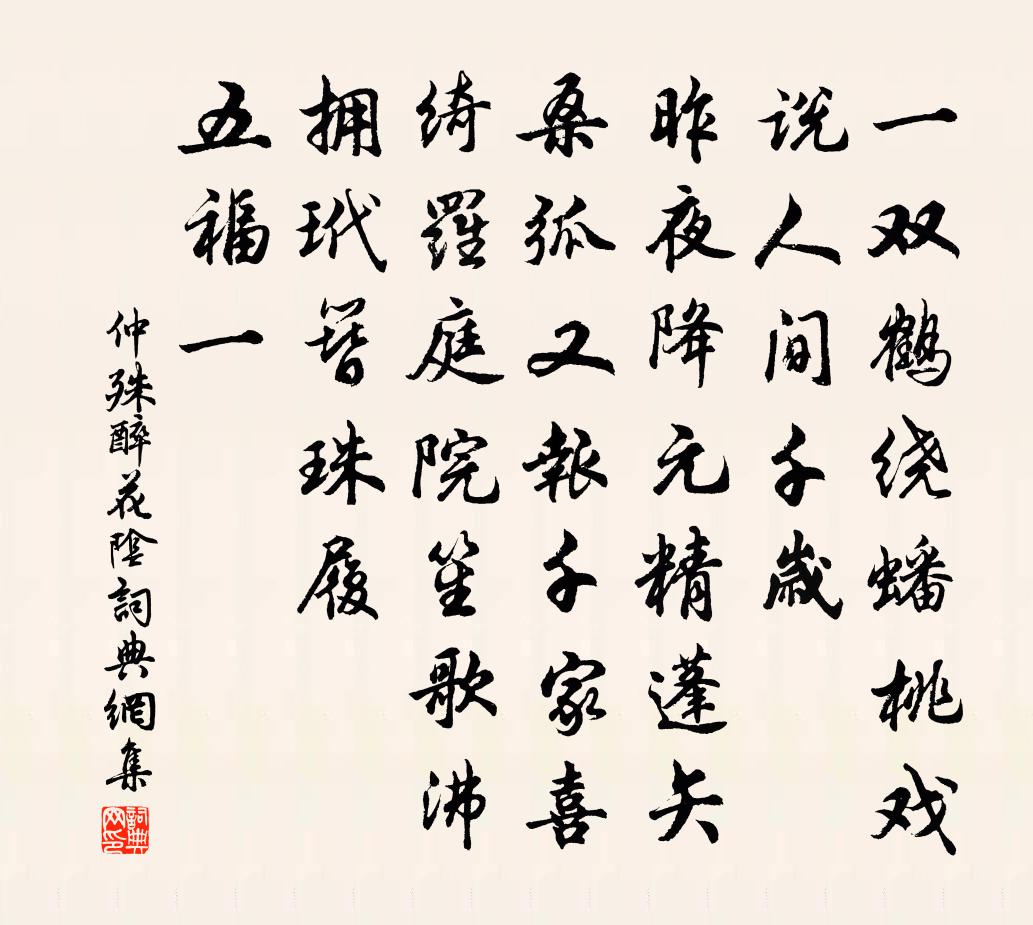 一双鹤绕蟠桃戏
说人间千歲
昨夜降元精蓬矢
桑弧又報千家喜
绮羅庭院笙歌沸
拥玳簪珠履
五福一
仲殊醉花陰詞典網集
詞典
网印